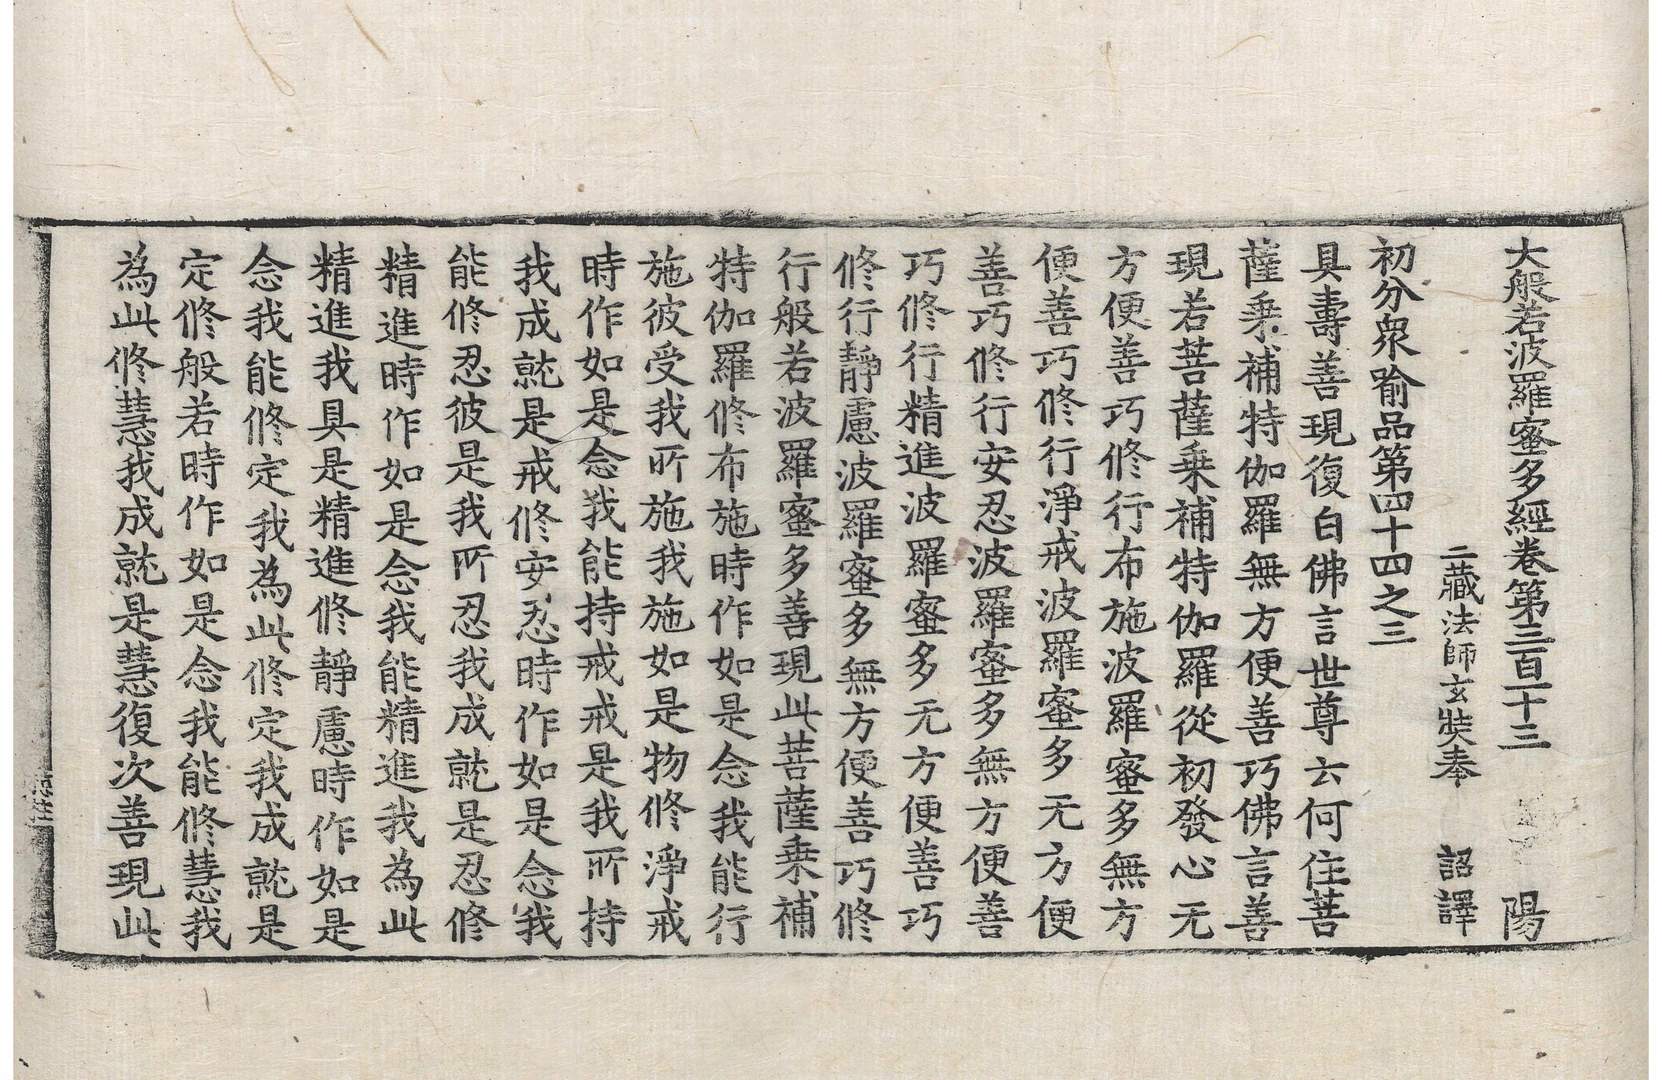 大般若波羅蜜多經卷第三百一十三 陽
三藏法師玄奘奉 詔譯
初分眾喻品第四十四之三
具壽善現復白佛言世尊云何住菩
薩乘補特伽羅無方便善巧佛言善
現若菩薩乘補特伽羅從初發心无
方便善巧修行布施波羅蜜多無方
便善巧修行淨戒波羅蜜多无方便
善巧修行安忍波羅蜜多無方便善
巧修行精進波羅蜜多无方便善巧
修行靜慮波羅蜜多無方便善巧修
行般若波羅蜜多善現此菩薩乘補
特伽羅修布施時作如是念我能行
施彼受我所施我施如是物修淨戒
時作如是念我能持戒戒是我所持
我成就是戒修安忍時作如是念我
能修忍彼是我所忍我成就是忍修
精進時作如是念我能精進我為此
精進我具是精進修靜慮時作如是
念我能修定我為此修定我成就是
定修般若時作如是念我能修慧我
為此修慧我成就是慧復次善現此